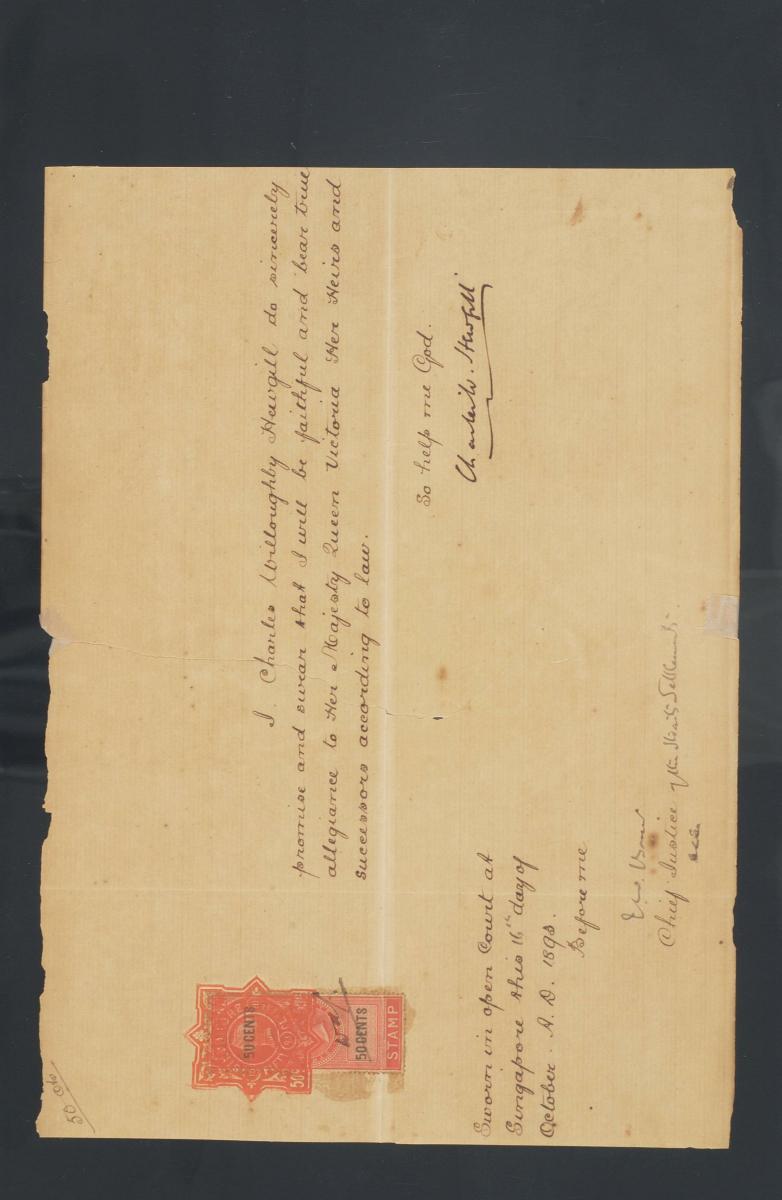 50 cts
50 CENTS
50c
50 CENTS
STAMP
I. Charles Willoughby Hewgill do sincerely
promise and swear that I will be faithful and bear true
allegiance to Her Majesty Queen Victoria Her Heirs and
Successors according to law.
So help me God.
Charles W. Hewgill
Sworn in open Court at
Singapore this 16th day of
October. A. D. 1893.
Before me
Chief Justice of the Straits Settlements